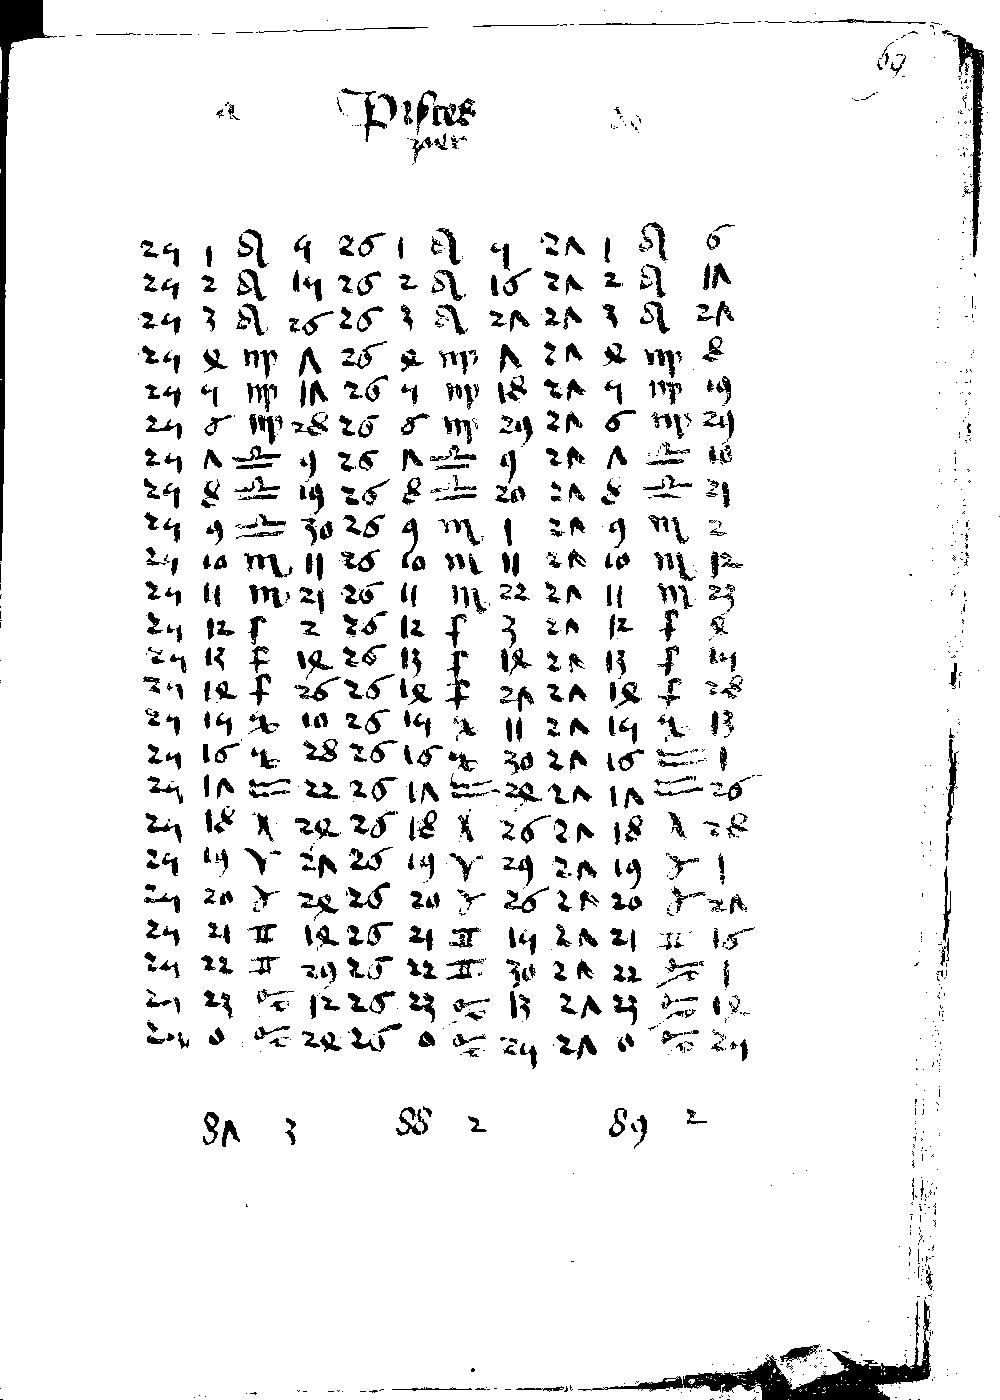 69
Pisces
25 1 ♌ 5 26 1 ♌ 5 27 1 ♌ 6
25 2 ♌ 15 26 2 ♌ 16 27 2 ♌ 17
25 3 ♌ 26 26 3 ♌ 27 27 3 ♌ 27
25 4 ♍ 7 26 4 ♍ 7 27 4 ♍ 8
25 5 ♍ 17 26 5 ♍ 18 27 5 ♍ 19
25 6 ♍ 28 26 6 ♍ 29 27 6 ♍ 29
25 7 ♎ 9 26 7 ♎ 9 27 7 ♎ 10
25 8 ♎ 19 26 8 ♎ 20 27 8 ♎ 21
25 9 ♎ 30 26 9 ♏ 1 27 9 ♏ 2
25 10 ♏ 11 26 10 ♏ 11 27 10 ♏ 12
25 11 ♏ 21 26 11 ♏ 22 27 11 ♏ 23
25 12 ♐ 2 26 12 ♐ 3 27 12 ♐ 4
25 13 ♐ 14 26 13 ♐ 14 27 13 ♐ 15
25 14 ♐ 26 26 14 ♐ 27 27 14 ♐ 28
25 15 ♑ 10 26 15 ♑ 11 27 15 ♑ 13
25 16 ♑ 28 26 16 ♑ 30 27 16 ♒ 1
25 17 ♒ 22 26 17 ♒ 24 27 17 ♒ 26
25 18 ♓ 24 26 18 ♓ 26 27 18 ♓ 28
25 19 ♈ 27 26 19 ♈ 29 27 19 ♉ 1
25 20 ♉ 24 26 20 ♉ 26 27 20 ♉ 27
25 21 ♊ 14 26 21 ♊ 15 27 21 ♊ 16
25 22 ♊ 29 26 22 ♊ 30 27 22 ♋ 1
25 23 ♋ 12 26 23 ♋ 13 27 23 ♋ 14
25 0 ♋ 24 26 0 ♋ 25 27 0 ♋ 25
87 3 88 2 89 2